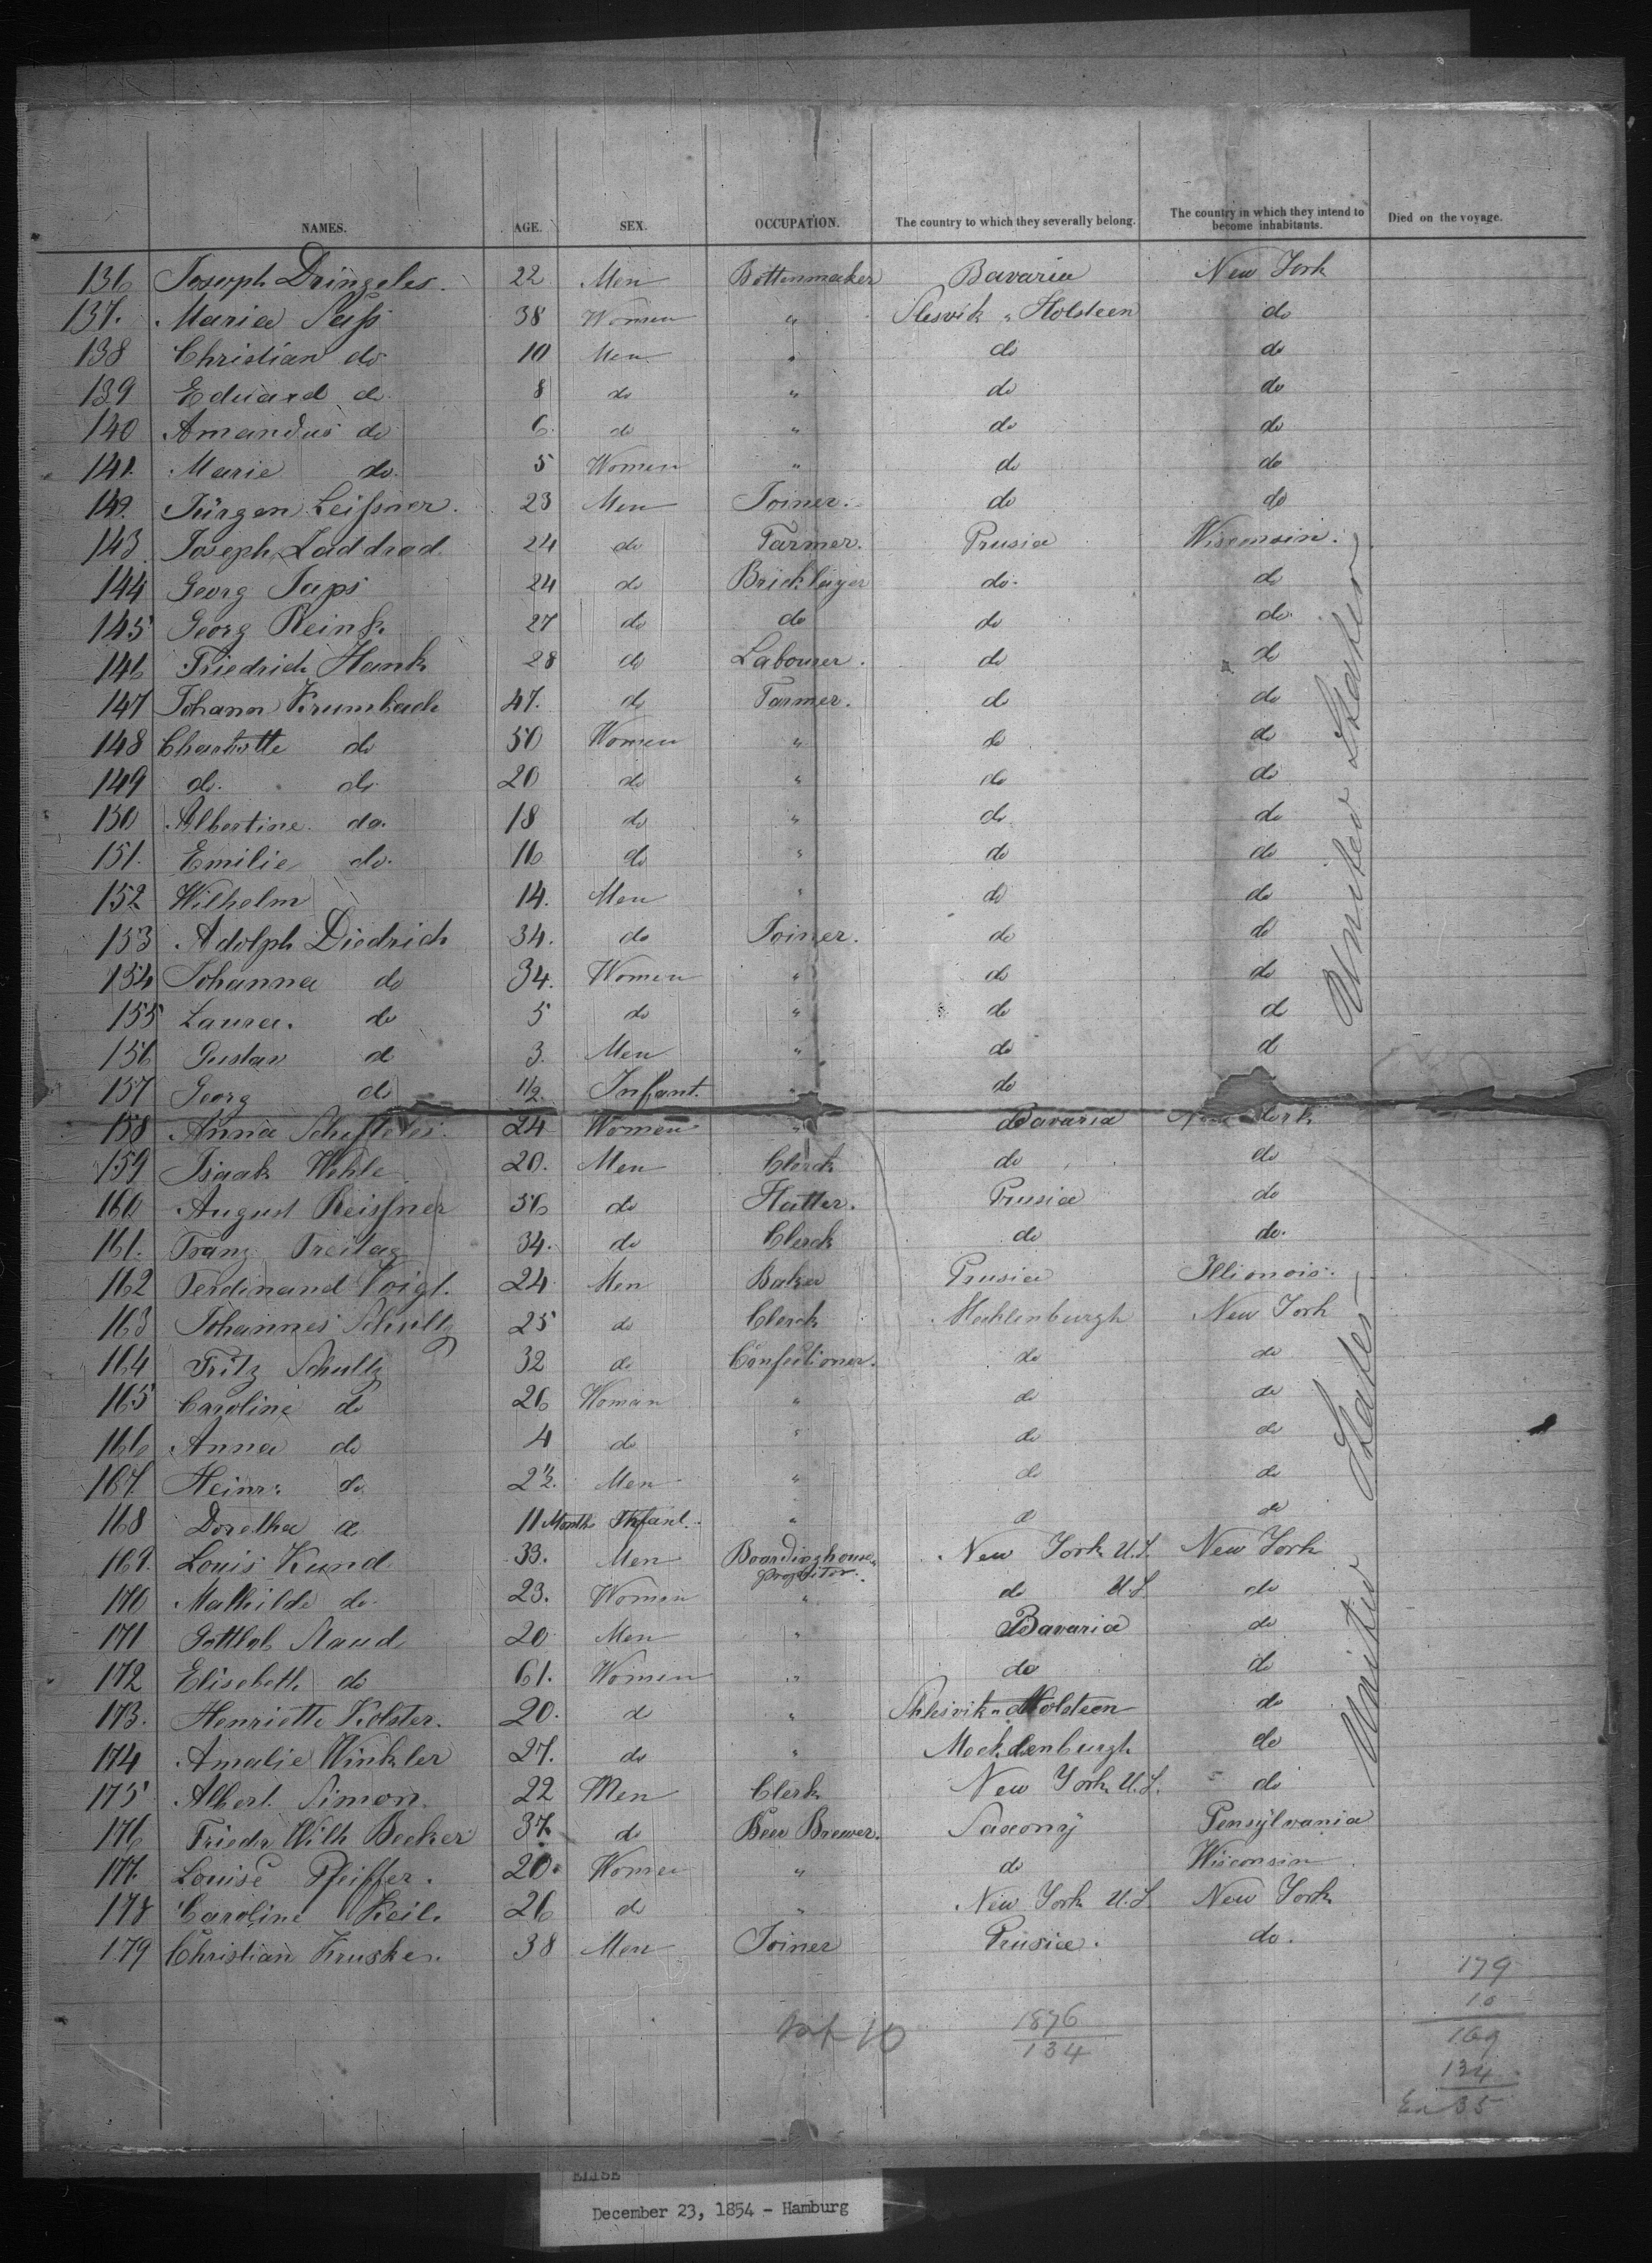 NAMES. AGE. SEX. OCCUPATION. The country to which they severally belong. The country in which they intend to become inhabitants. Died on the voyage.
136 Joseph Dringeles. 22 Men Bavaria New York
137. Maria Saſs 38 Women " Slesvik " Holsteen do
138 Christian do 10 Men " do do
139 Eduard do 8 do " do do
140 Amandus do 6. do " do do
141. Marie do. 5 Women " do do
142. Jürgen Leiſsner. 23 Men Joiner. do do
143 Joseph Laddrod 24 do Farmer. Prusia Wisconsin.
144 Georg Japs 24 do Bricklayer do. do
145 Georg 27 do do do do.
146 Friedrich Hank 28 do Labourer. do do
147 Johann Krumbach 47. do Farmer. do do
148 Charlotte do 50 Women " do do
149 do. do 20 do " do do
150 Albertine do. 18 do " do. do
151. Emilie do. 16 do " do do
152 Wilhelm 14. Men " do do
153 Adolph Diedrich 34. do Joiner. do do
154 Johanna do 34. Women " do do
155 Laura. do 5 do " do do
156 Gustav do 3. Men " do do
157 Georg do 1/2 Infant. " do
158 Anna 24 Women " Bavaria New York
159 Isaak Wehle 20. Men Clerck do do
160 August Reiſsner 36 do Hatter. Prusia do
161. Franz Freitag 34. do Clerck do do.
162 Ferdinand Voigt. 24 Men Baker Prusia Illionois.
163 Johannes Schultz 25 do Clerck Mecklenburgh New York
164 Fritz Schultz 32 do Confectioner. do do
165 Caroline do 26 Woman " do do
166 Anna do 4 do " do do
167. Heinr: do 2 1/2. Men " do do
168 Dorethea do 11 Months Infant. " do do
169. Louis Kund 33. Men Boardinghouse New York U.S. New York
170 Mathilde do. 23. Women " do U.S. do
171 Gottlob Staud 20 Men " Bavaria do
172 Elisebeth do 61. Women " do do
173. Henriette Kolster. 20. do " Shlesvik " Holsteen do
174 Amalie Winkler 27. do " Mecklenburgh do
175 Albert Simon. 22 Men Clerk New York U.S. do
176 Friedr Wilh Becker 37. do Beer Brewer. Saxony Pensylvania
177. Louise Pfeiffer. 20. Women " do Wisconsin
178 Caroline Keil. 26 do " New York U.S. New York
179 Christian Kruske. 38 Men Joiner Prusia. do.
United States
United States
179
10
169
134
35
10
1876
134
ELISE
December 23, 1854 - Hamburg